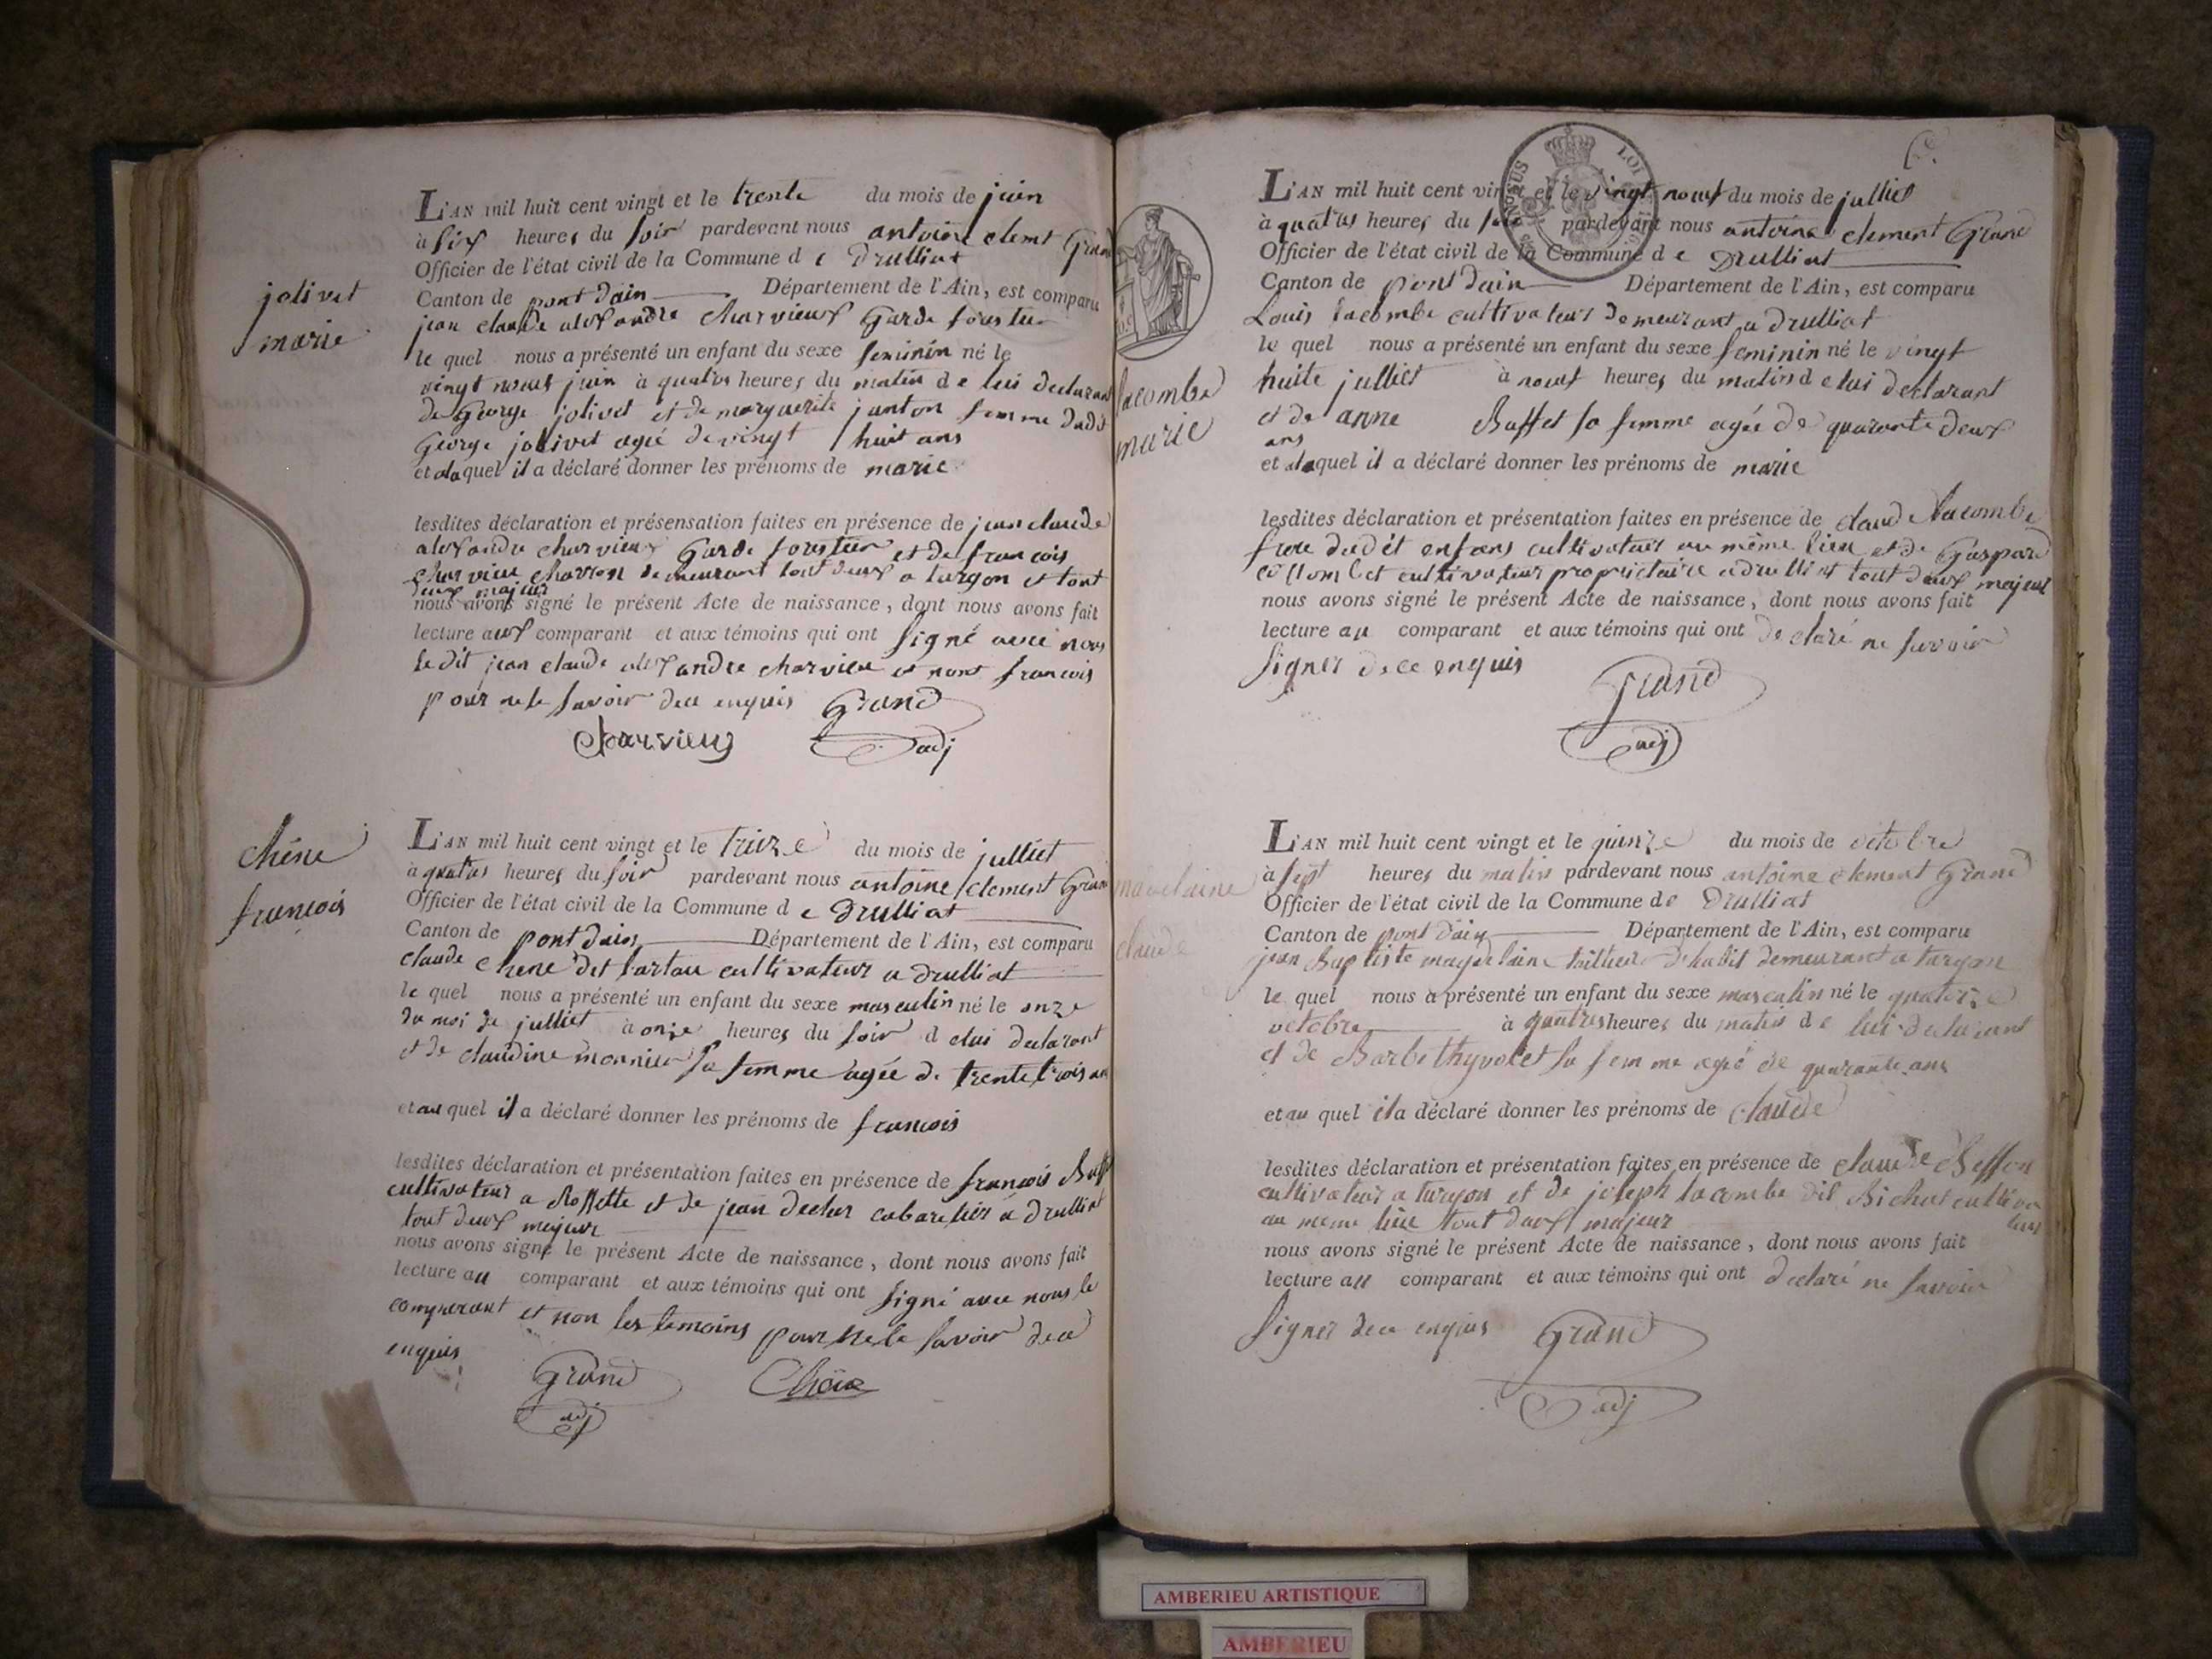 jolivet
marie
L'AN mil huit cent vingt et le trente du mois de juin
à six heures du soir pardevant nous antoine clemt Grand
Officier de l'état civil de la Commune d e Drulliat
Canton de pont dain Département de l'Ain, est comparu
jean claude alexandre charvieux Garde forestier
le quel nous a présenté un enfant du sexe feminin né le
vingt neuf juin à quatre heures du matin d e lui declarant
de George jolivet et de marguerite janton femme dudit
George jolivet agée de vingt huit ans
et alaquel il a déclaré donner les prénoms de marie
lesdites déclaration et présensation faites en présence de jean claude
alexandre charvieux Garde forestier et de francois
charvieu charron demeurant tout deux a turgon et tout
deux majeur
nous avons signé le présent Acte de naissance, dont nous avons fait
lecture aux comparant et aux témoins qui ont signé avec nous
le dit jean claude alexandre charvieu et nont francois
pour nele savoir dece enquis Grand
Charvieux adj
chêne
francois
L'AN mil huit cent vingt et le treize du mois de julliet
à quatres heures du soir pardevant nous antoine clement Grand
Officier de l'état civil de la Commune d e Drulliat
Canton de pont dain Département de l'Ain, est comparu
claude chene dit cultivateur a drulliat
le quel nous a présenté un enfant du sexe masculin né le onze
du moi de julliet à onze heures du soir d elui declarant
et de claudine monnier sa femme agée de trente trois an
et au quel il a déclaré donner les prénoms de francois
lesdites déclaration et présentation faites en présence de francois Buff
cultivateur a Rossette et de jean decher cabaretier a drulliat
tout deux majeur
nous avons signé le présent Acte de naissance, dont nous avons fait
lecture au comparant et aux témoins qui ont signé avec nous le
comparant et non les temoins pour nele savoir dece
enquis
Grand Chêne
adj
6e.
lacombe
marie
L'AN mil huit cent vingt et le vingt neuf du mois de julliet
à quatres heures du soir pardevant nous antoine clement Grand
Officier de l'état civil de la Commune d e Drulliat
Canton de pont dain Département de l'Ain, est comparu
Louis lacombe cultivateur demeurant a drulliat
le quel nous a présenté un enfant du sexe feminin né le vingt
huite julliet à neuf heures du matin d e lui declarant
et de anne Buffet sa femme agée de quarante deux
ans
et alaquel il a déclaré donner les prénoms de marie
lesdites déclaration et présentation faites en présence de claude lacombe
frere dudit enfans cultivateur au même lieu et de Gaspard
collombet cultivateur proprietaire a drulliat tout deux majeur
nous avons signé le présent Acte de naissance, dont nous avons fait
lecture au comparant et aux témoins qui ont declaré ne savoir
signer dece enquis
Grand
adj
madelaine
claude
L'AN mil huit cent vingt et le quinze du mois de octobre
à sept heures du matin pardevant nous antoine clement Grand
Officier de l'état civil de la Commune de Drulliat
Canton de pont dain Département de l'Ain, est comparu
jean Baptiste magdelaine tailleur d'habit demeurant a turgon
le quel nous a présenté un enfant du sexe masculin né le quatorze
octobre à quatres heures du matin d e lui declarant
et de Barbe thyvolet sa femme agée de quarante ans
et au quel il a déclaré donner les prénoms de claude
lesdites déclaration et présentation faites en présence de claude
cultivateur a turgon et de joseph lacombe dit Bichat cultiva
au meme lieu tout deux majeur teur
nous avons signé le présent Acte de naissance, dont nous avons fait
lecture au comparant et aux témoins qui ont declaré ne savoir
signer dece enquis Grand
adj
AMBERIEU ARTISTIQUE
AMBERIEU